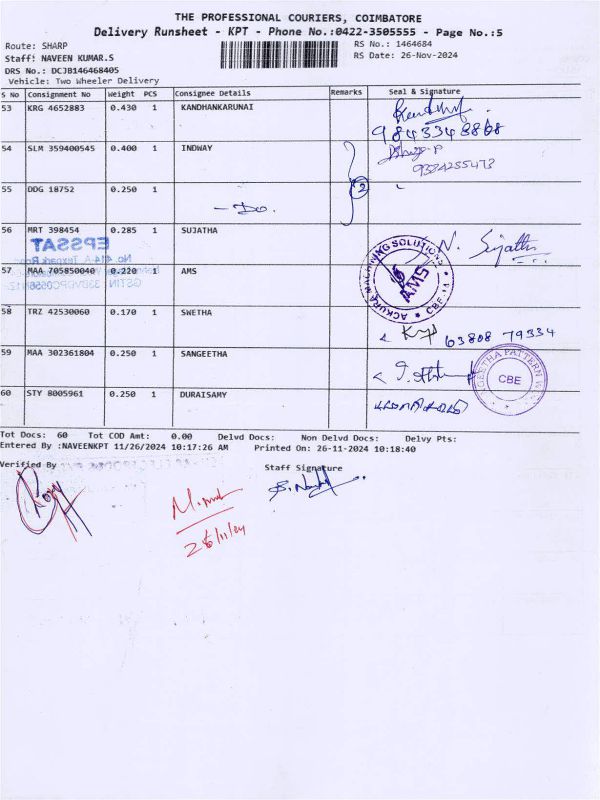 THE PROFESSIONAL COURIERS, COIMBATORE
Delivery Runsheet - KPT - Phone No.:0422-3505555 - Page No.:5
Route: SHARP
RS No.: 1464684
Staff: NAVEEN KUMAR.S
RS Date: 26-Nov-2024
DRS No.: DCJB146468405
Vehicle: Two Wheeler Delivery
S No Consignment No Weight PCS Consignee Details Remarks Seal & Signature
53 KRG 4652883 0.430 1 KANDHANKARUNAI
9843348868
54 SLM 359400545 0.400 1 INDWAY
9384255473
55 DDG 18752 0.250 1
- Do. 2
56 MRT 398454 0.285 1 SUJATHA N. Sujatha
EPSSAT
No. 414-A, Texpark Road
57 MAA 705850040 0.220 1 AMS
ACKURA MACHINING SOLUTIONS
AMS
CBE-14
58 TRZ 42530060 0.170 1 SWETHA
63808 79334
59 MAA 302361804 0.250 1 SANGEETHA
GEETHA PATTERN
CBE
60 STY 8005961 0.250 1 DURAISAMY
Tot Docs: 60 Tot COD Amt: 0.00 Delvd Docs: Non Delvd Docs: Delvy Pts:
Entered By :NAVEENKPT 11/26/2024 10:17:26 AM Printed On: 26-11-2024 10:18:40
Verified By Staff Signature
26/11/24